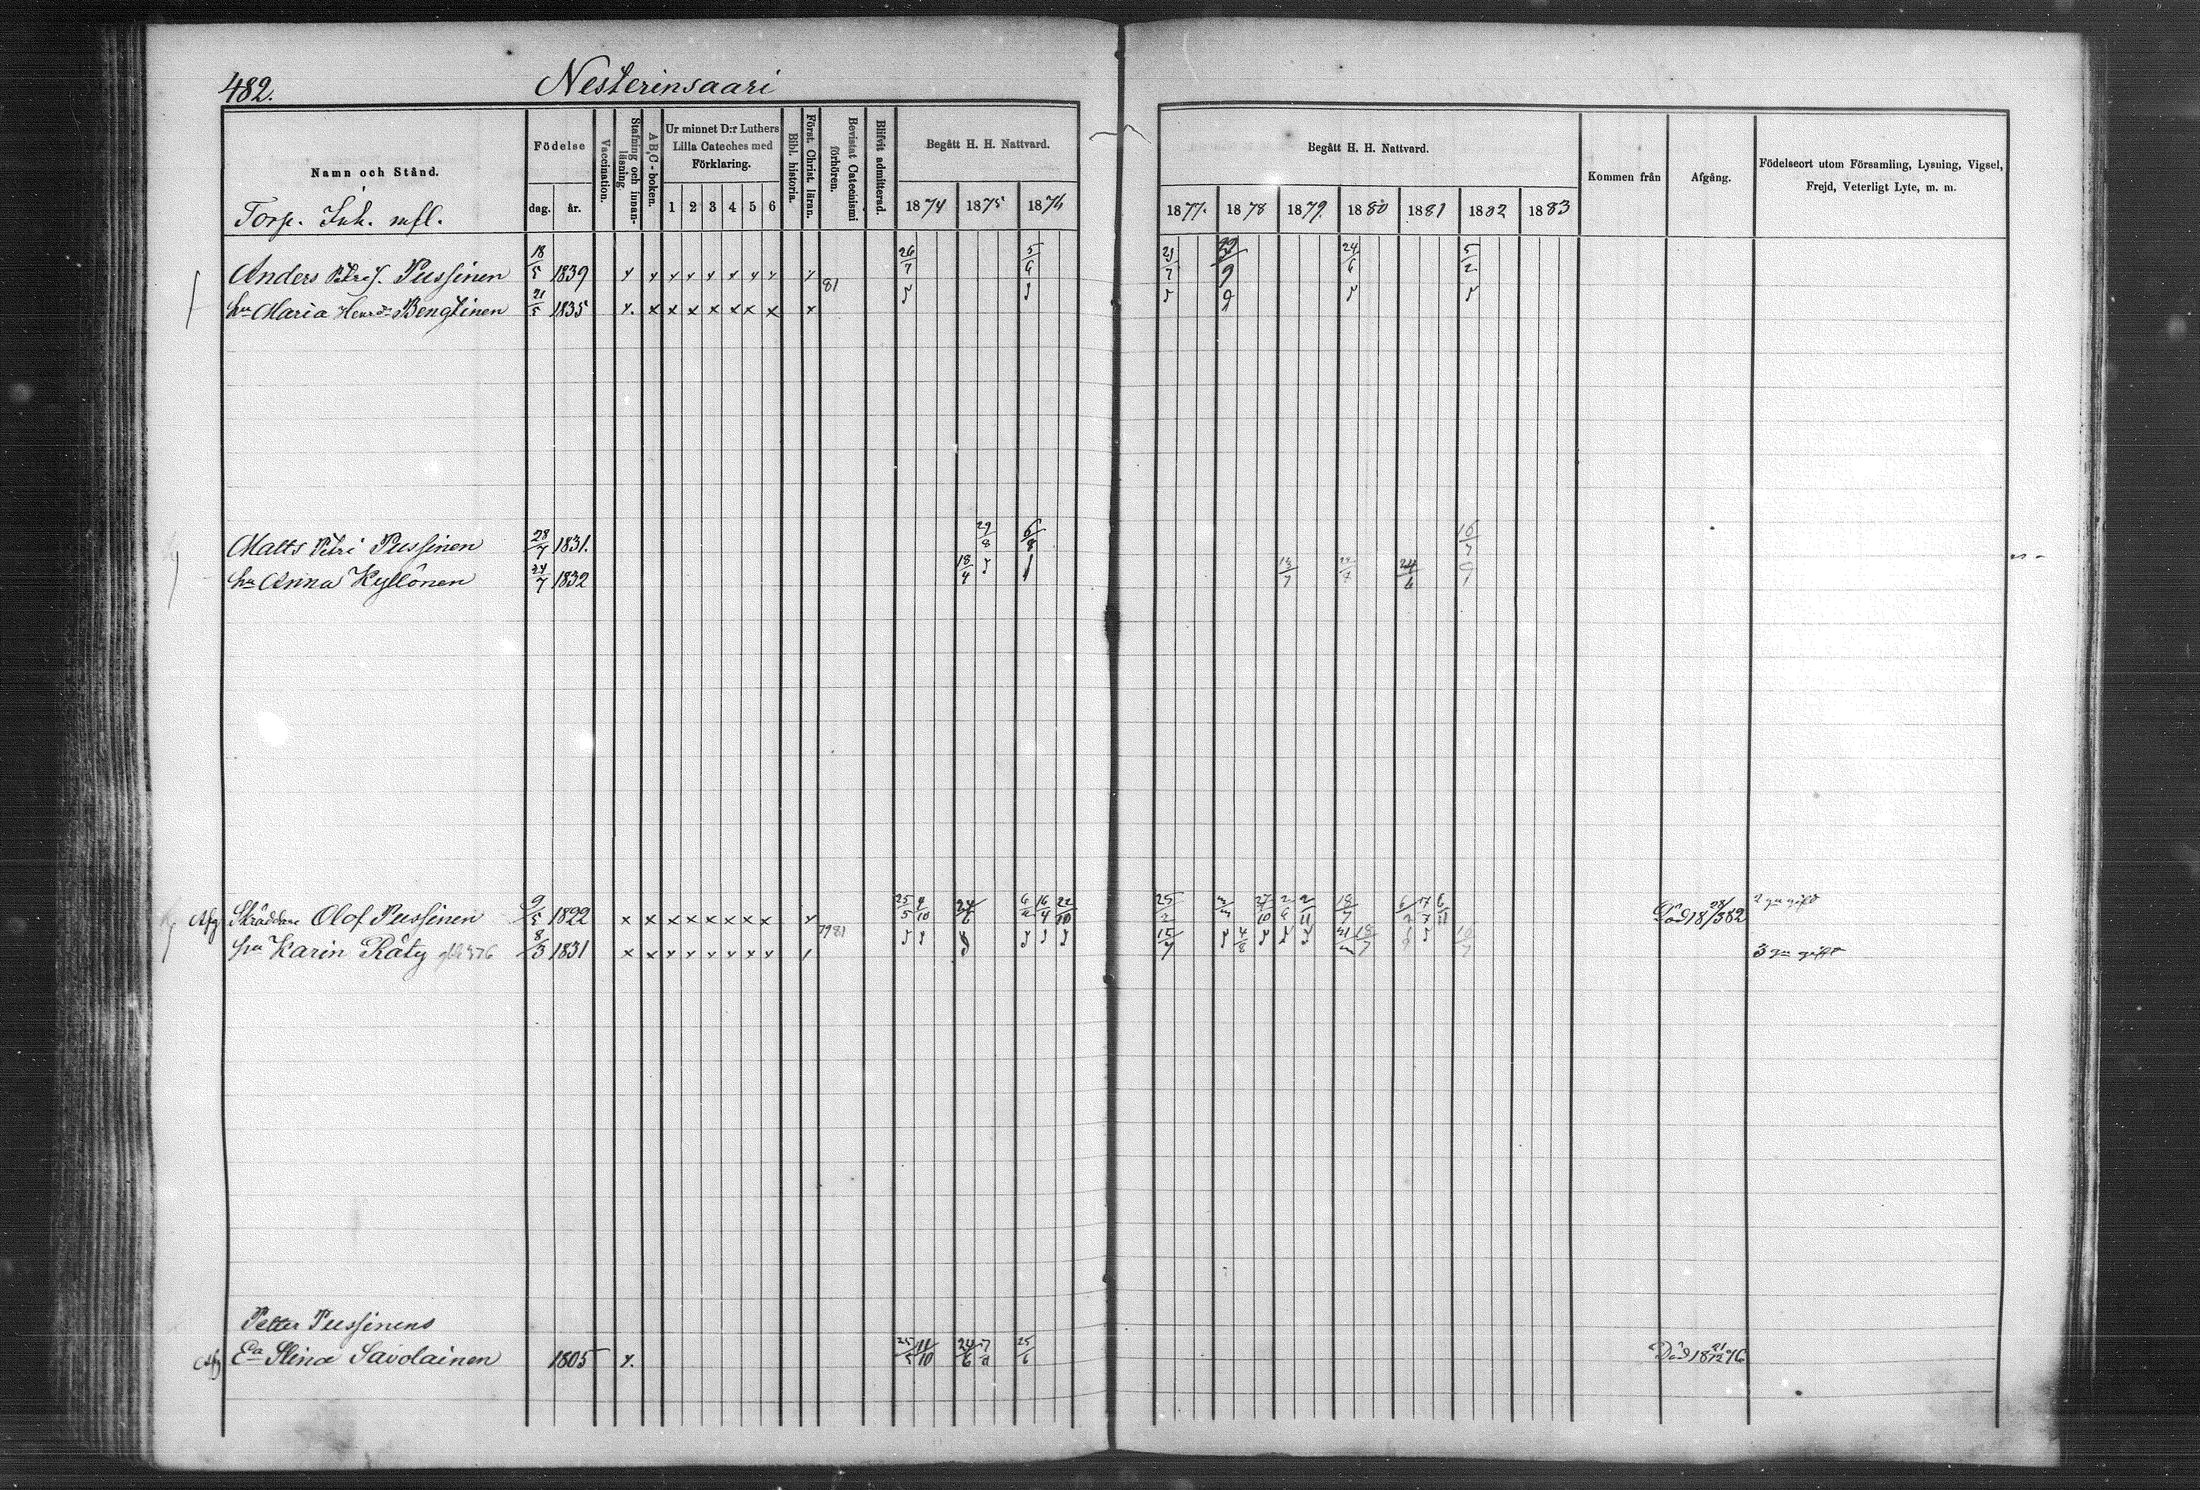 482.
Nesterinsaari
Namn och Stånd.
Födelse
dag. år.
Vaccination.
Stafning och innan-läsning.
A B C-boken.
Ur minnet D:r Luthers Lilla Cateches med Förklaring.
1 2 3 4 5 6
Bibl. historia.
Först. Christ. läran.
Bevistat Catecismi förhören.
Blifvit admitterad.
Begått H. H. Nattvard.
1874 1875 1876
Begått H. H. Nattvard.
1877. 1878 1879. 1880 1881 1882 1883
Kommen från
Afgång.
Födelseort utom Församling, Lysning, Vigsel, Frejd, Veterligt Lyte, m. m.
Torp. Inh. mfl.
Anders Petrif. Pussinen 18/5 1839 x x x x x x x x x 81 26/7 5/6 29/7 24/6 5/2
hu Maria Henrd Bengtinen 21/5 1835 x x x x x x x x x
Matts Petri Pussinen 28/7 1831. 29/8 6/8 16/7
hu Anna Kyllönen 24/7 1832 18/4 24/6
Afg Skräddare Olof Pussinen 9/5 1822 x x x x x x x x x 25/5 4/10 24/6 6/2 16/4 22/10 25/2 27/10 2/11 18/7 Död 18 28/3 82 2 gn gift
hu Karin Räty 8/3 1831 x x x x x x x x 7981 15/7 4/8 3 gn gift
Petter Pussinens
Afg Ea Stina Savolainen 1805 x. 25/5 11/10 24/6 25/6 Död 18 21/12 76